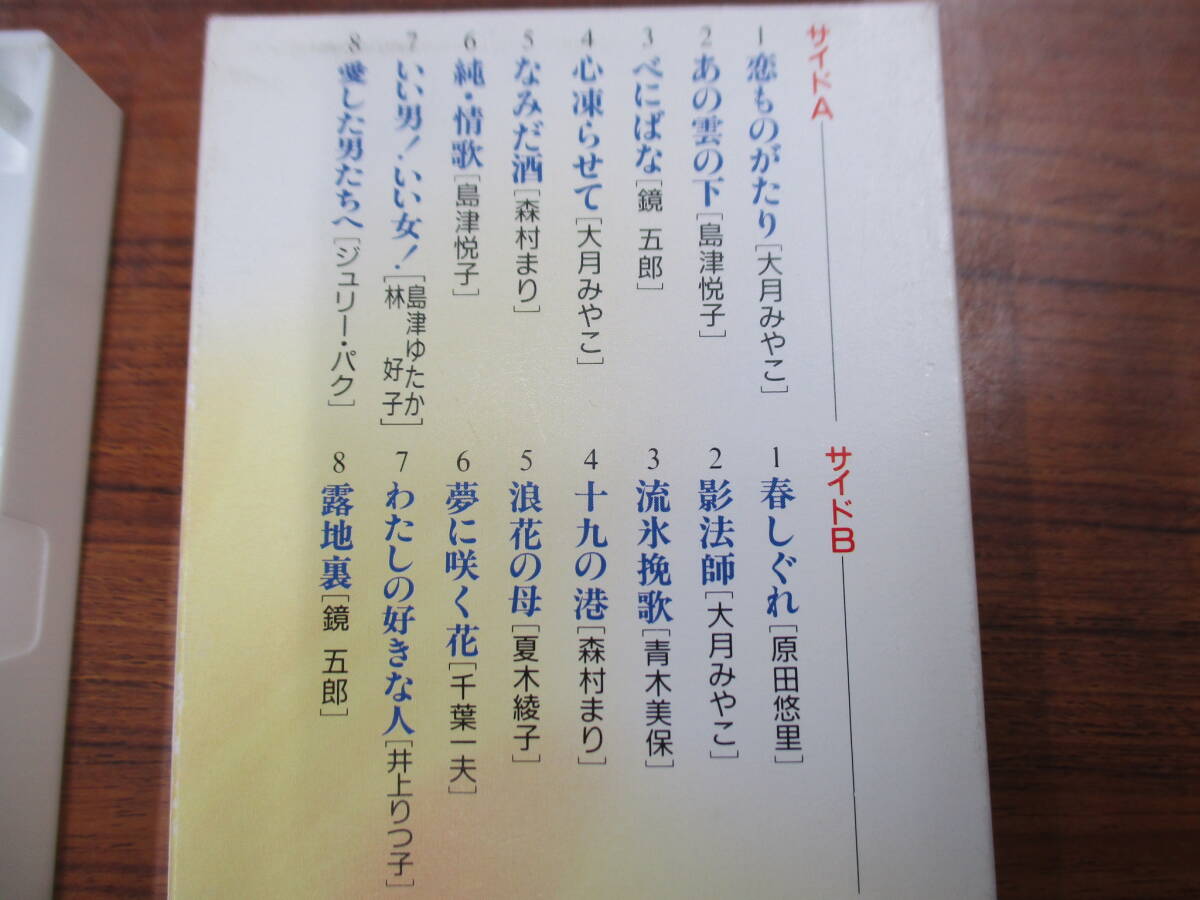 サイドA
1 恋ものがたり[大月みやこ]
2 あの雲の下[島津悦子]
3 べにばな[鏡 五郎]
4 心凍らせて[大月みやこ]
5 なみだ酒[森村まり]
6 純・情歌[島津悦子]
7 いい男!いい女![島津ゆたか 林 好子]
8 愛した男たちへ[ジュリー・パク]
サイドB
1 春しぐれ[原田悠里]
2 影法師[大月みやこ]
3 流氷挽歌[青木美保]
4 十九の港[森村まり]
5 浪花の母[夏木綾子]
6 夢に咲く花[千葉一夫]
7 わたしの好きな人[井上りつ子]
8 露地裏[鏡 五郎]